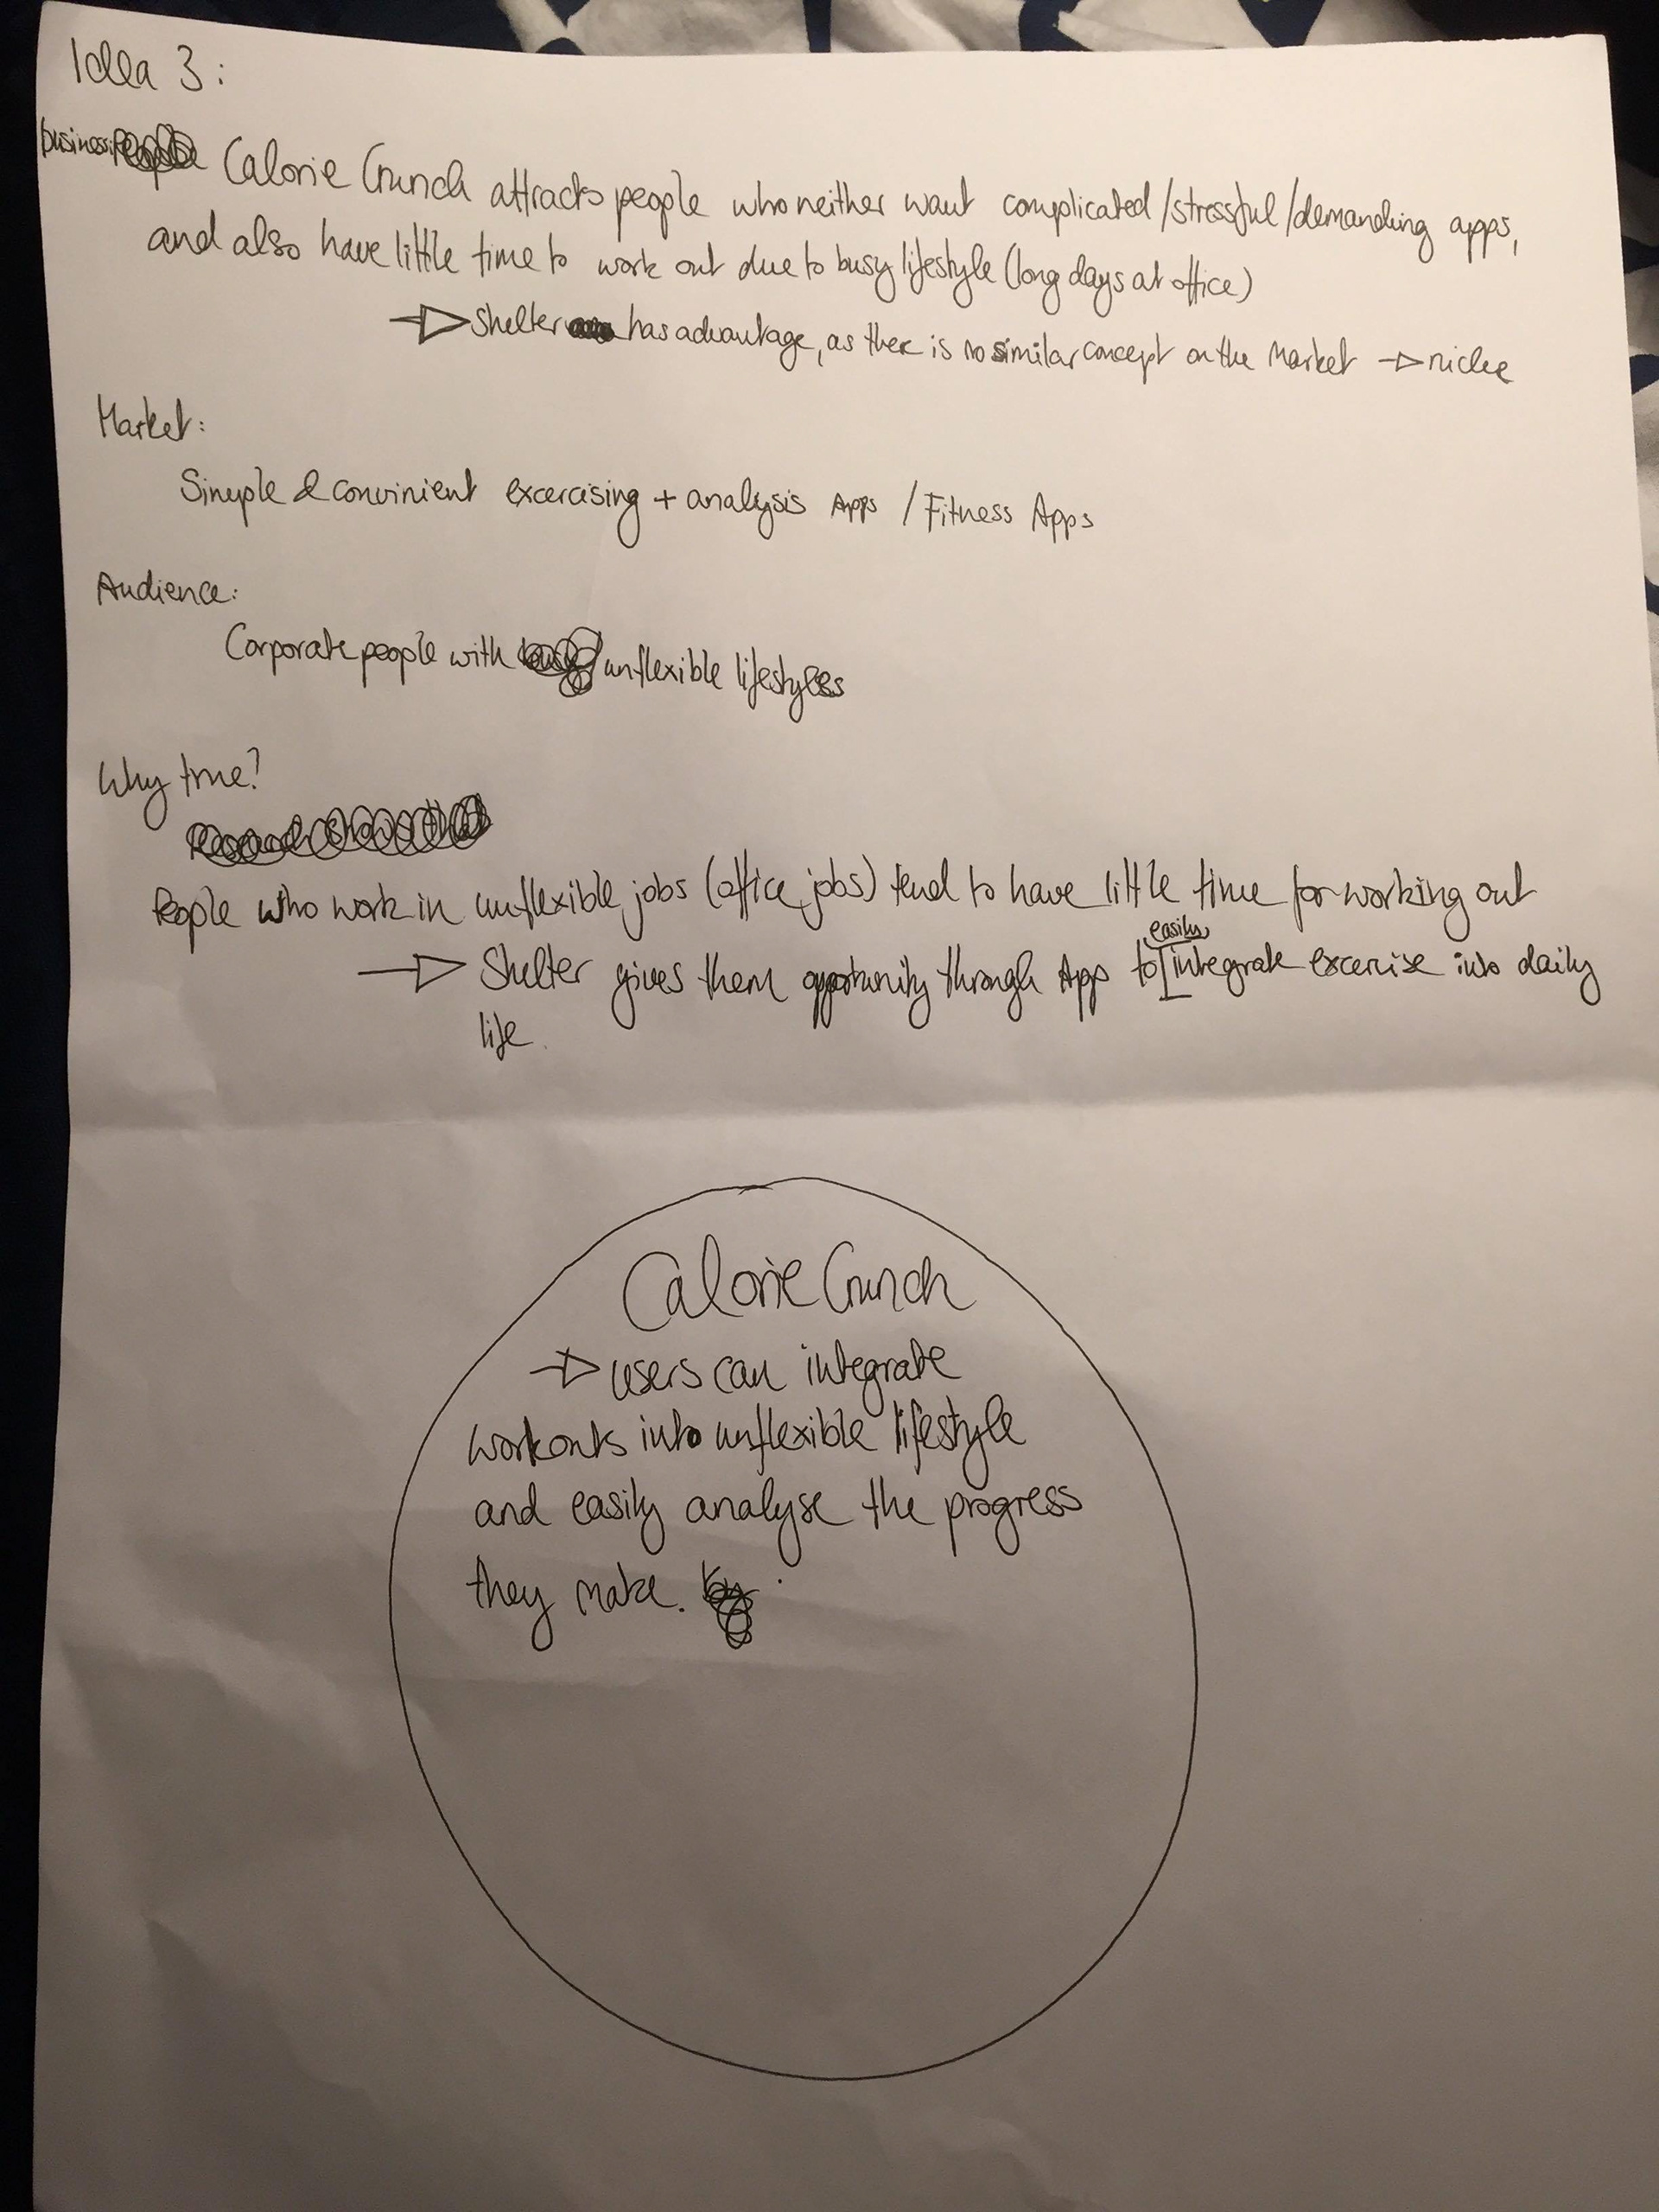 Idea 3:
business Calorie Crunch attracts people who neither want complicated/stressful/demanding apps,
and also have little time to work out due to busy lifestyle (long days at office)
→ Shelter has advantage, as there is no similar concept on the market → niche
Market:
Simple & convinient excercising + analysis Apps / Fitness Apps
Audience:
Corporate people with unflexible lifestyles
Why true?
People who work in unflexible jobs (office jobs) tend to have little time for working out
easily
→ Shelter gives them opportunity through App to integrate excercise into daily
life.
Calorie Crunch
→ users can integrate
workouts into unflexible lifestyle
and easily analyse the progress
they make.